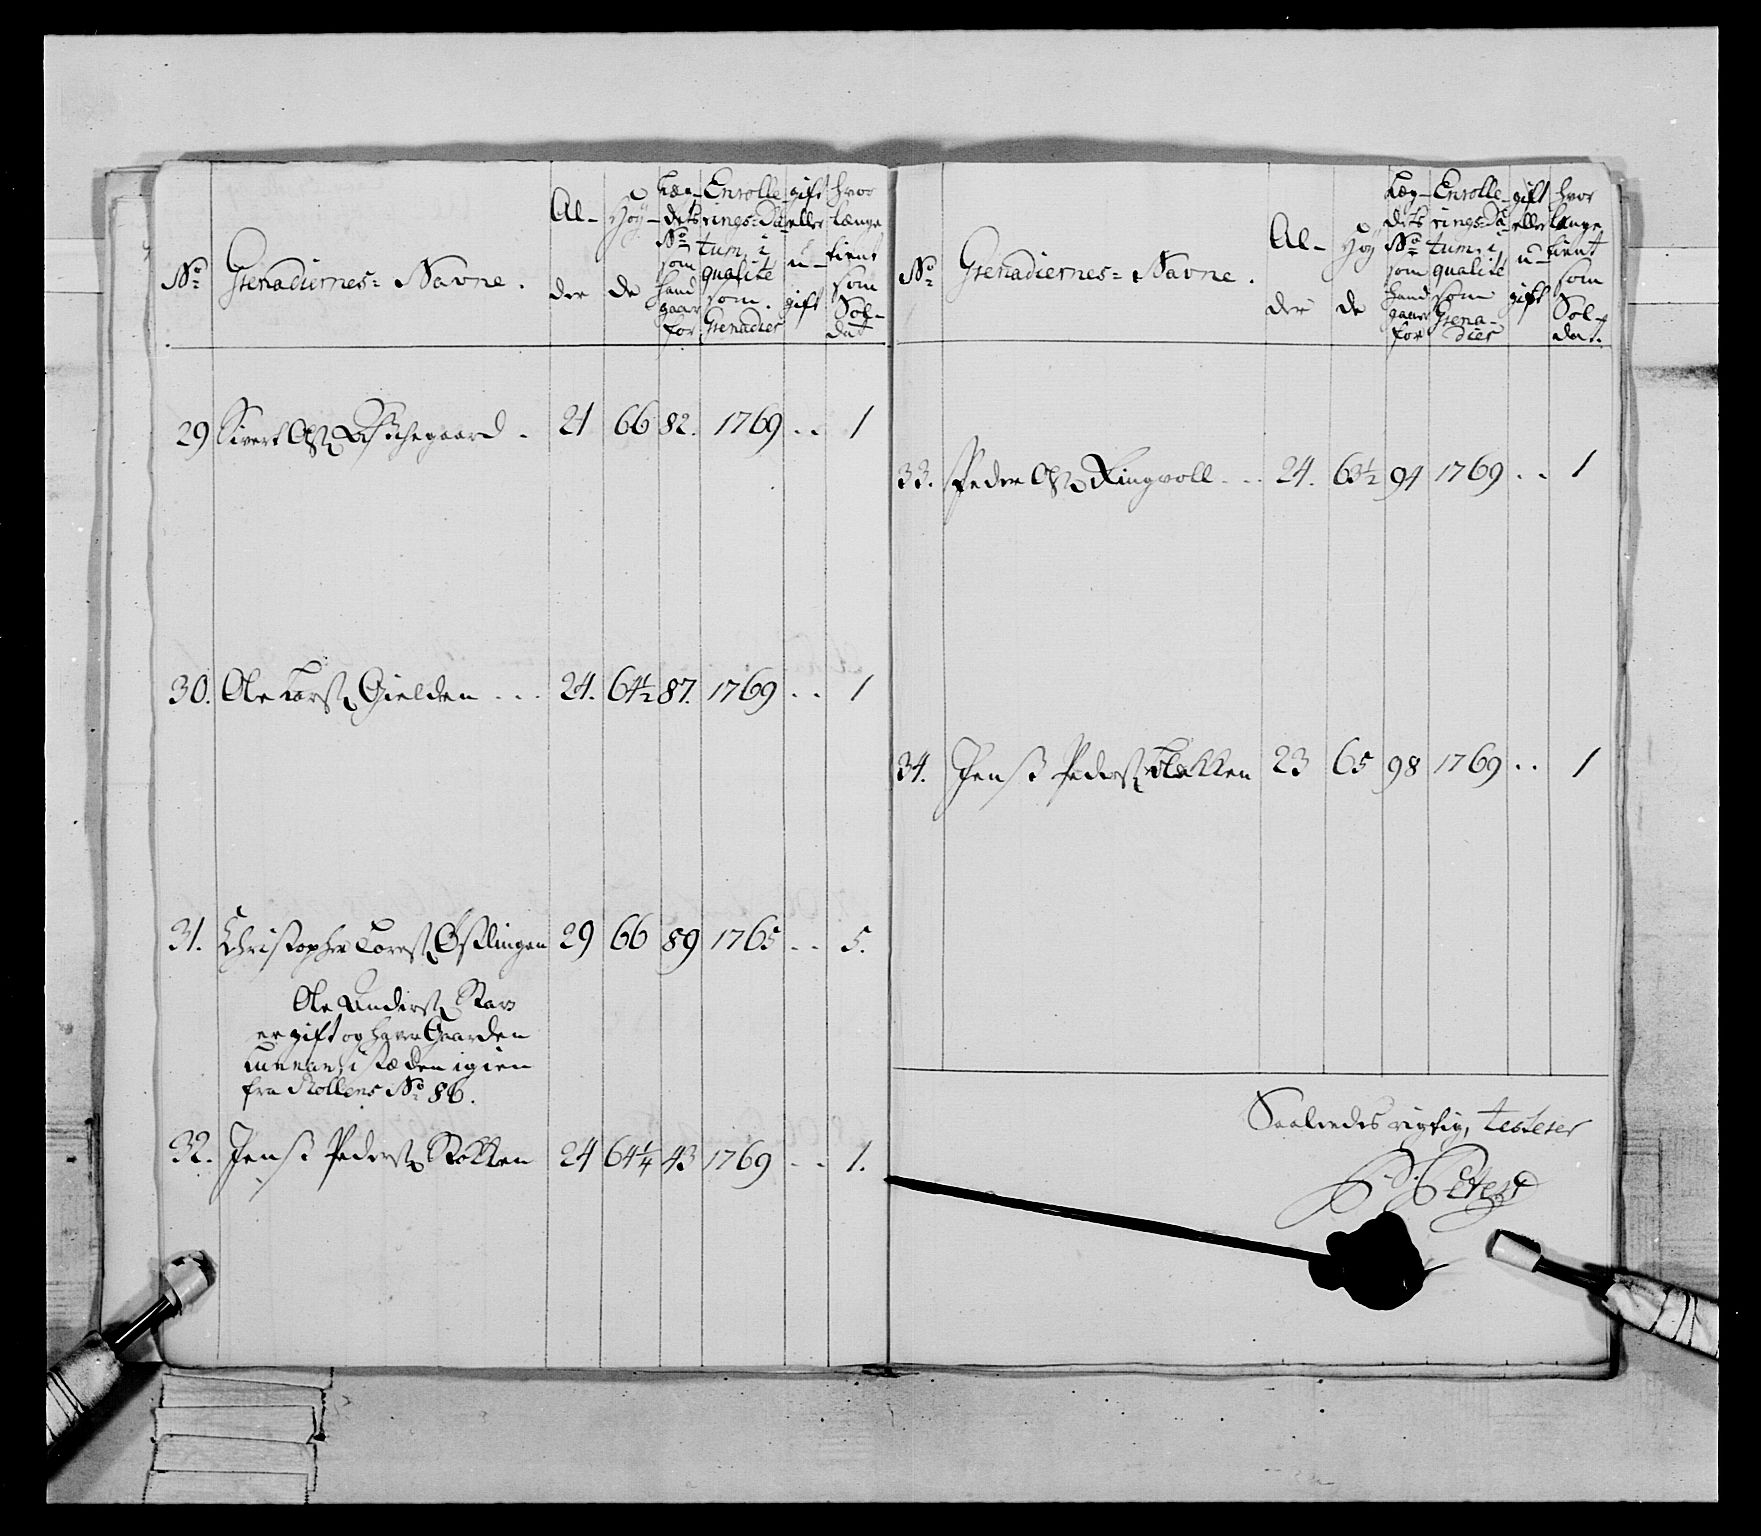 No
Grenadiernes= Navne.
Al-
der
Høy-
de
Læg-
dets
No
som
hand
gaar
for
Enrolle-
rings=Da-
tum, i
qualité
som.
Grenadier
gift
eller
u-
gift
hvor
længe
tient
som
Sol-
dat
29 Sivert Ols. 21 66 82. 1769 . . 1
30. Ole Larss. Gielden . . . 24. 64½ 87. 1769 . . 1
31. Christopher Toress. Østlingen 29 66 89 1765 . . 5.
Ole Anderss.
er gift og have Gaarden
i steden igien
fra Rollens No 86.
32. Jenss Pederss. 24 64¼ 43 1769 . . 1.
No
Grenadiernes= Navne.
Al-
der
Høy
de
Læg-
dets
No
som
hand
gaar
for
Enrolle-
rings=Da-
tum, i
qualité
som
Grena-
dier
gift
eller
u-
gift
hvor
længe
tient
som
Sol-
dat.
33. Peder Ols. Ringvoll . . . 24. 63½ 94 1769 . . 1
34. Jenss Pederss. 23 65 98 1769 . . 1
Saaledes rigtig, testerer